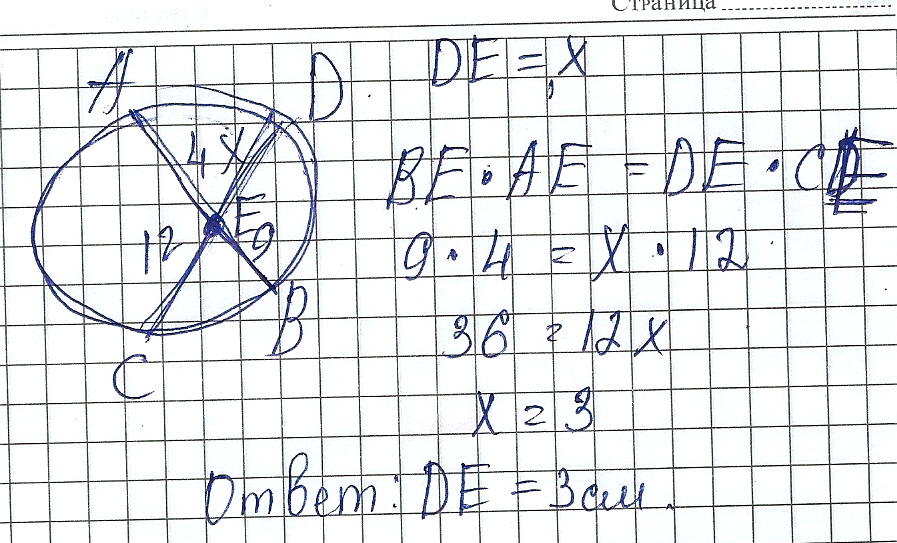 Страница
A
D
DE = x
4
x
BE · AE = DE · CE
E
12
9
9 · 4 = x · 12
B
36 = 12x
C
x = 3
Ответ: DE = 3 см.